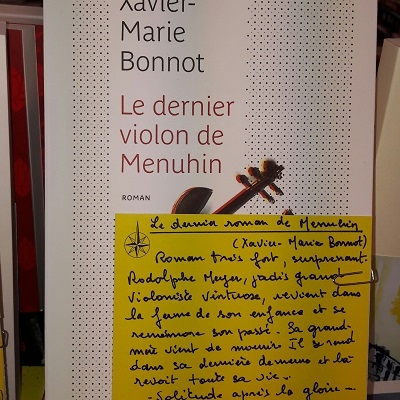 Xavier-
Marie
Bonnot
Le dernier
violon de
Menuhin
ROMAN
Le dernier roman de Menuhin
(Xavier-Marie Bonnot)
Roman très fort, surprenant.
Rodolphe Meyer, jadis grand
violoniste virtuose, revient dans
la ferme de son enfance et se
remémore son passé. Sa grand-
mère vient de mourir. Il se rend
dans sa dernière demeure et là
revoit toute sa vie..
- Solitude après la gloire -